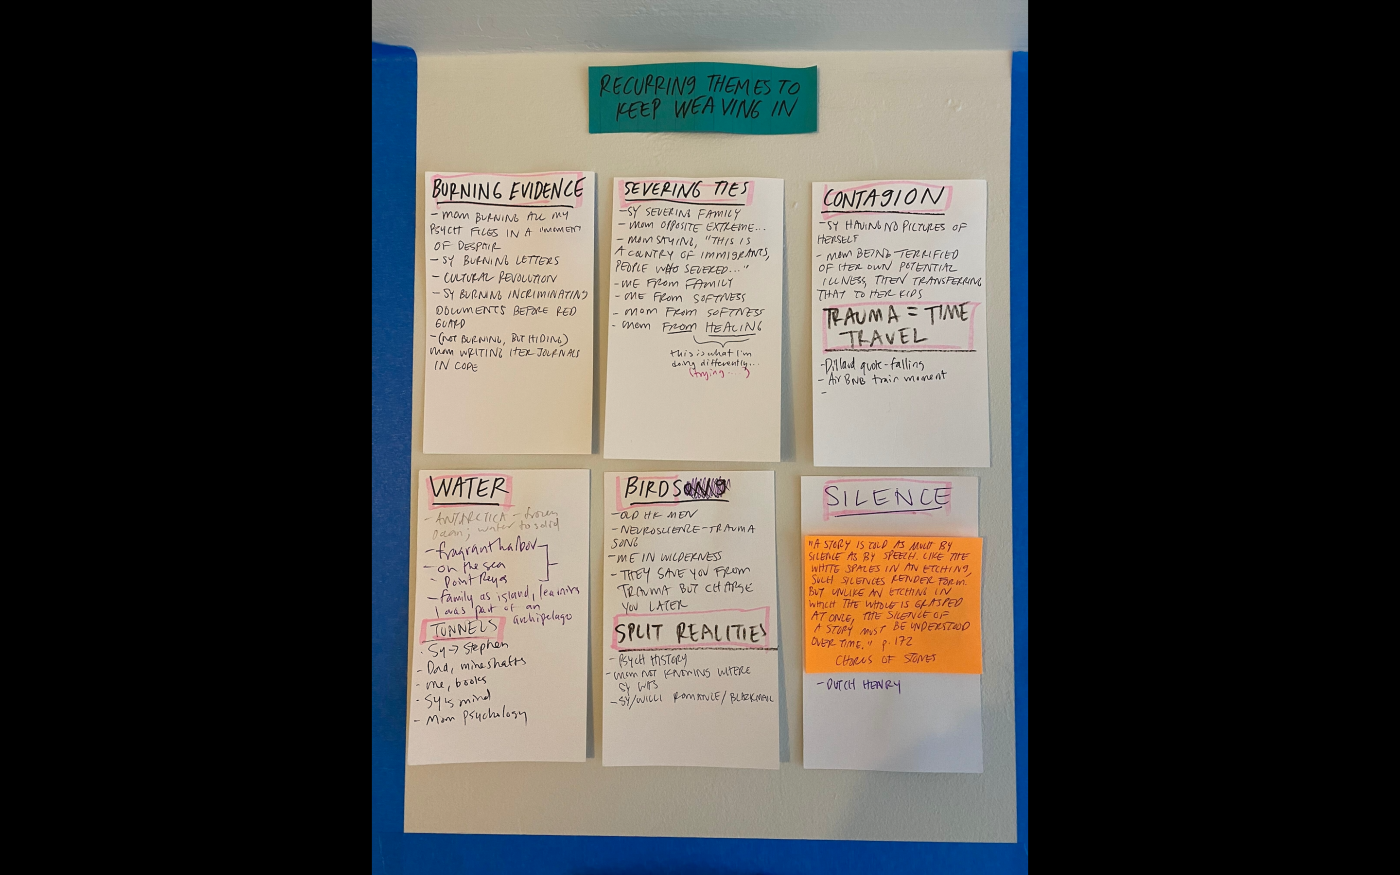 RECURRING THEMES TO
KEEP WEAVING IN
BURNING EVIDENCE
- MOM BURNING ALL MY
PSYCH FILES IN A "MOMENT
OF DESPAIR
- SY BURNING LETTERS
- CULTURAL REVOLUTION
- SY BURNING INCRIMINATING
DOCUMENTS BEFORE RED
GUARD
- (NOT BURNING, BUT HIDING)
MOM WRITING HER JOURNALS
IN CODE
SEVERING TIES
- SY SEVERING FAMILY
- MOM OPPOSITE EXTREME...
- MOM SAYING, "THIS IS
A COUNTRY OF IMMIGRANTS,
PEOPLE WHO SEVERED..."
- ME FROM FAMILY
- ME FROM SOFTNESS
- MOM FROM SOFTNESS
- MOM FROM HEALING
this is what I'm
doing differently...
(trying...)
CONTAGION
- SY HAVING NO PICTURES OF
HERSELF
- MOM BEING TERRIFIED
OF HER OWN POTENTIAL
ILLNESS, THEN TRANSFERRING
THAT TO HER KIDS
TRAUMA = TIME
TRAVEL
- Dillard quote - falling
- Air BNB train moment
-
WATER
- ANTARCTICA - frozen
ocean; water to solid
- fragrant harbor
- on the sea
- Point Reyes
- family as island, learning
I was part of an
archipelago
TUNNELS
- Sy → Stephen
- Dad, mineshafts
- me, books
- Sy's mind
- Mom psychology
BIRDS
- OLD HK MEN
- NEUROSCIENCE - TRAUMA
SONG
- ME IN WILDERNESS
- THEY SAVE YOU FROM
TRAUMA BUT CHARGE
YOU LATER
SPLIT REALITIES
- PSYCH HISTORY
- MOM NOT KNOWING WHERE
SY WAS
- SY/WILLI ROMANCE/BLACKMAIL
SILENCE
"A STORY IS TOLD AS MUCH BY
SILENCE AS BY SPEECH. LIKE THE
WHITE SPACES IN AN ETCHING,
SUCH SILENCES RENDER FORM.
BUT UNLIKE AN ETCHING IN
WHICH THE WHOLE IS GRASPED
AT ONCE, THE SILENCE OF
A STORY MUST BE UNDERSTOOD
OVER TIME." p. 172
CHORUS OF STONES
- DUTCH HENRY